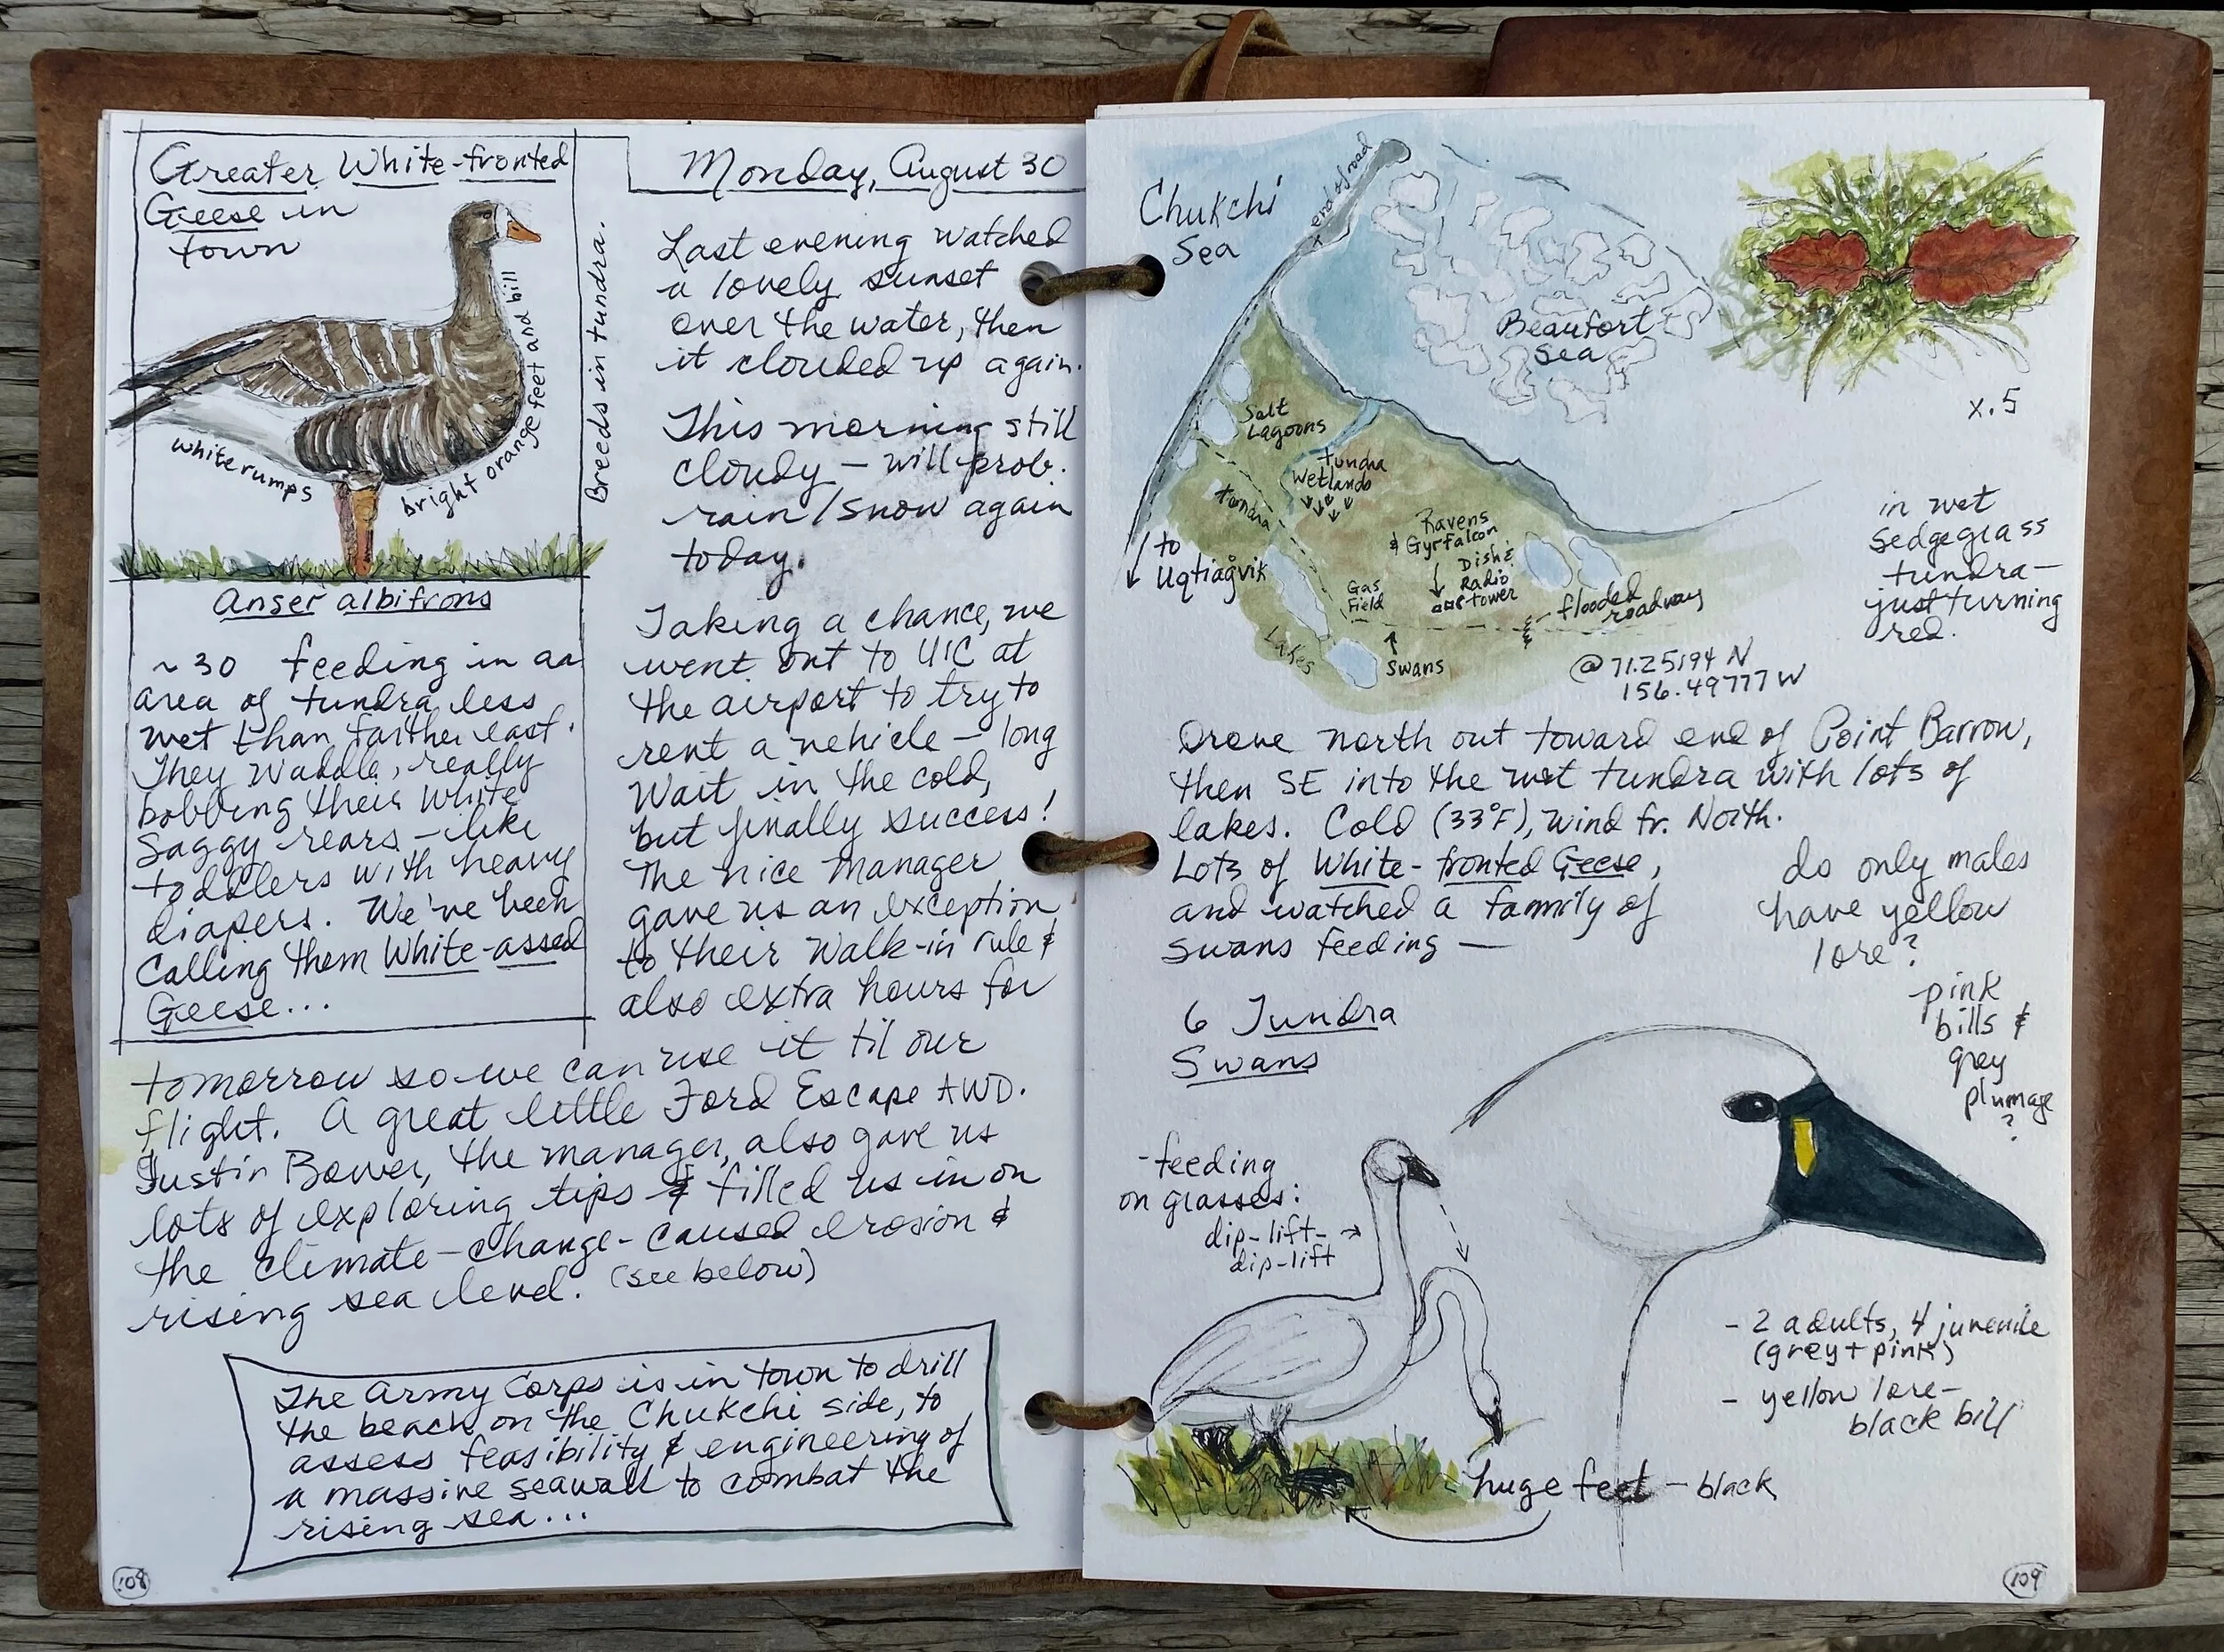 Greater White-fronted
Geese in
town
bright orange feet and bill
white rumps
Breeds in tundra.
Anser albifrons
~30 feeding in aa
area of tundra less
wet than farther east.
They waddle, really
bobbing their white
saggy rears - like
toddlers with heavy
diapers. We've been
calling them White-assed
Geese...
Monday, August 30
Last evening watched
a lovely sunset
over the water, then
it clouded up again.
This morning still
cloudy - will prob.
rain/snow again
today.
Taking a chance, we
went out to UIC at
the airport to try to
rent a vehicle - long
wait in the cold,
but finally success!
The nice manager
gave us an exception
to their walk-in rule &
also extra hours for
tomorrow so we can use it til our
flight. A great little Ford Escape AWD.
Justin Bower, the manager, also gave us
lots of exploring tips & filled us in on
the climate-change-caused erosion &
rising sea level. (see below)
The Army Corps is in town to drill
the beach on the Chukchi side, to
assess feasibility & engineering of
a massive seawall to combat the
rising sea...
108
Chukchi
Sea
end of road
Beaufort
Sea
Salt
Lagoons
tundra
Wetlands
tundra
Ravens
& Gyrfalcon
Dish &
Radio
tower
Gas
Field
to
Uqtiaġvik
Lakes
Swans
flooded
roadway
@ 71.25194 N
156.49777 W
x.5
in wet
sedgegrass
tundra-
just turning
red.
Drove north out toward end of Point Barrow,
then SE into the wet tundra with lots of
lakes. Cold (33°F), wind fr. North.
Lots of White-fronted Geese,
and watched a family of
swans feeding —
do only males
have yellow
lore?
pink
bills &
grey
plumage
?
6 Tundra
Swans
-feeding
on grasses:
dip-lift-
dip-lift
- 2 adults, 4 juvenile
(grey + pink)
- yellow lore-
black bill
huge feet - black
109